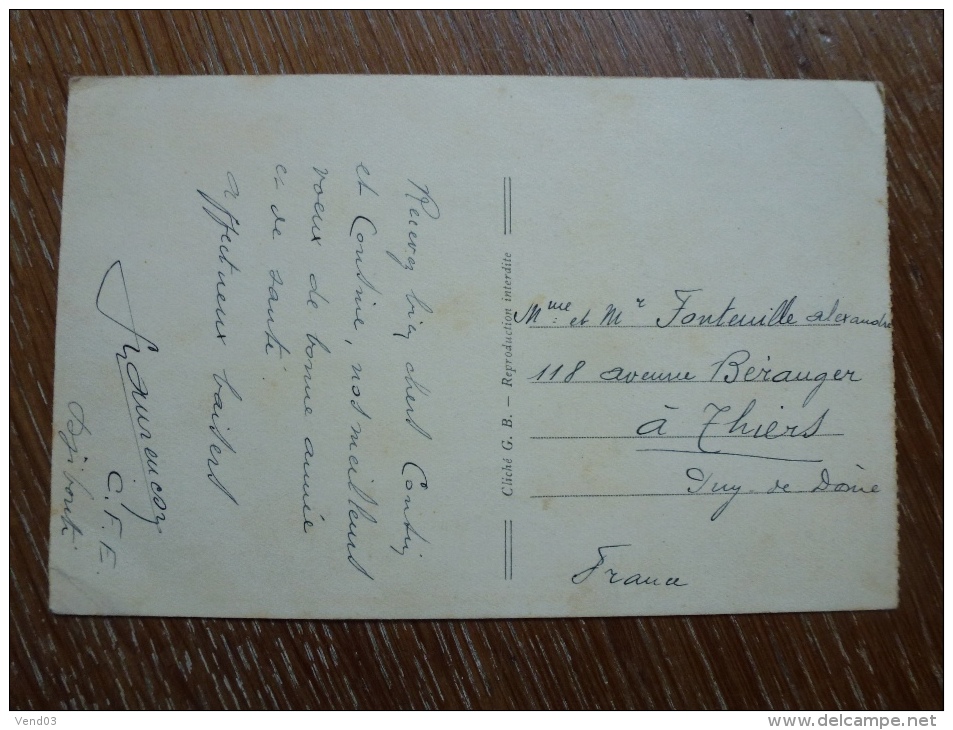 Recevez bien chers Cousin
et Cousine, nos meilleurs
voeux de bonne année
et de santé.
Affectueux baisers
C. F. E.
Djibouti
Cliché G. B. – Reproduction interdite
Mme et Mr Fonteuille alexandre
118 avenue Béranger
à Thiers
Puy-de Dôme
France
Vend03
http://www.delcampe.net